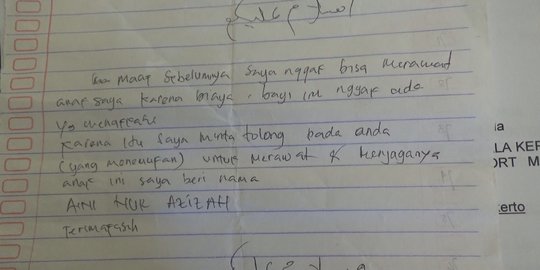 maaf sebelumnya saya nggak bisa merawat
anak saya karena biaya. bayi ini nggak ada
yg mengakui
karena itu saya minta tolong pada anda
(yang menemukan) untuk merawat & menjaganya
anak ini saya beri nama
AINI NUR AZIZAH
terimakasih
LA KER
ORT M
kerto